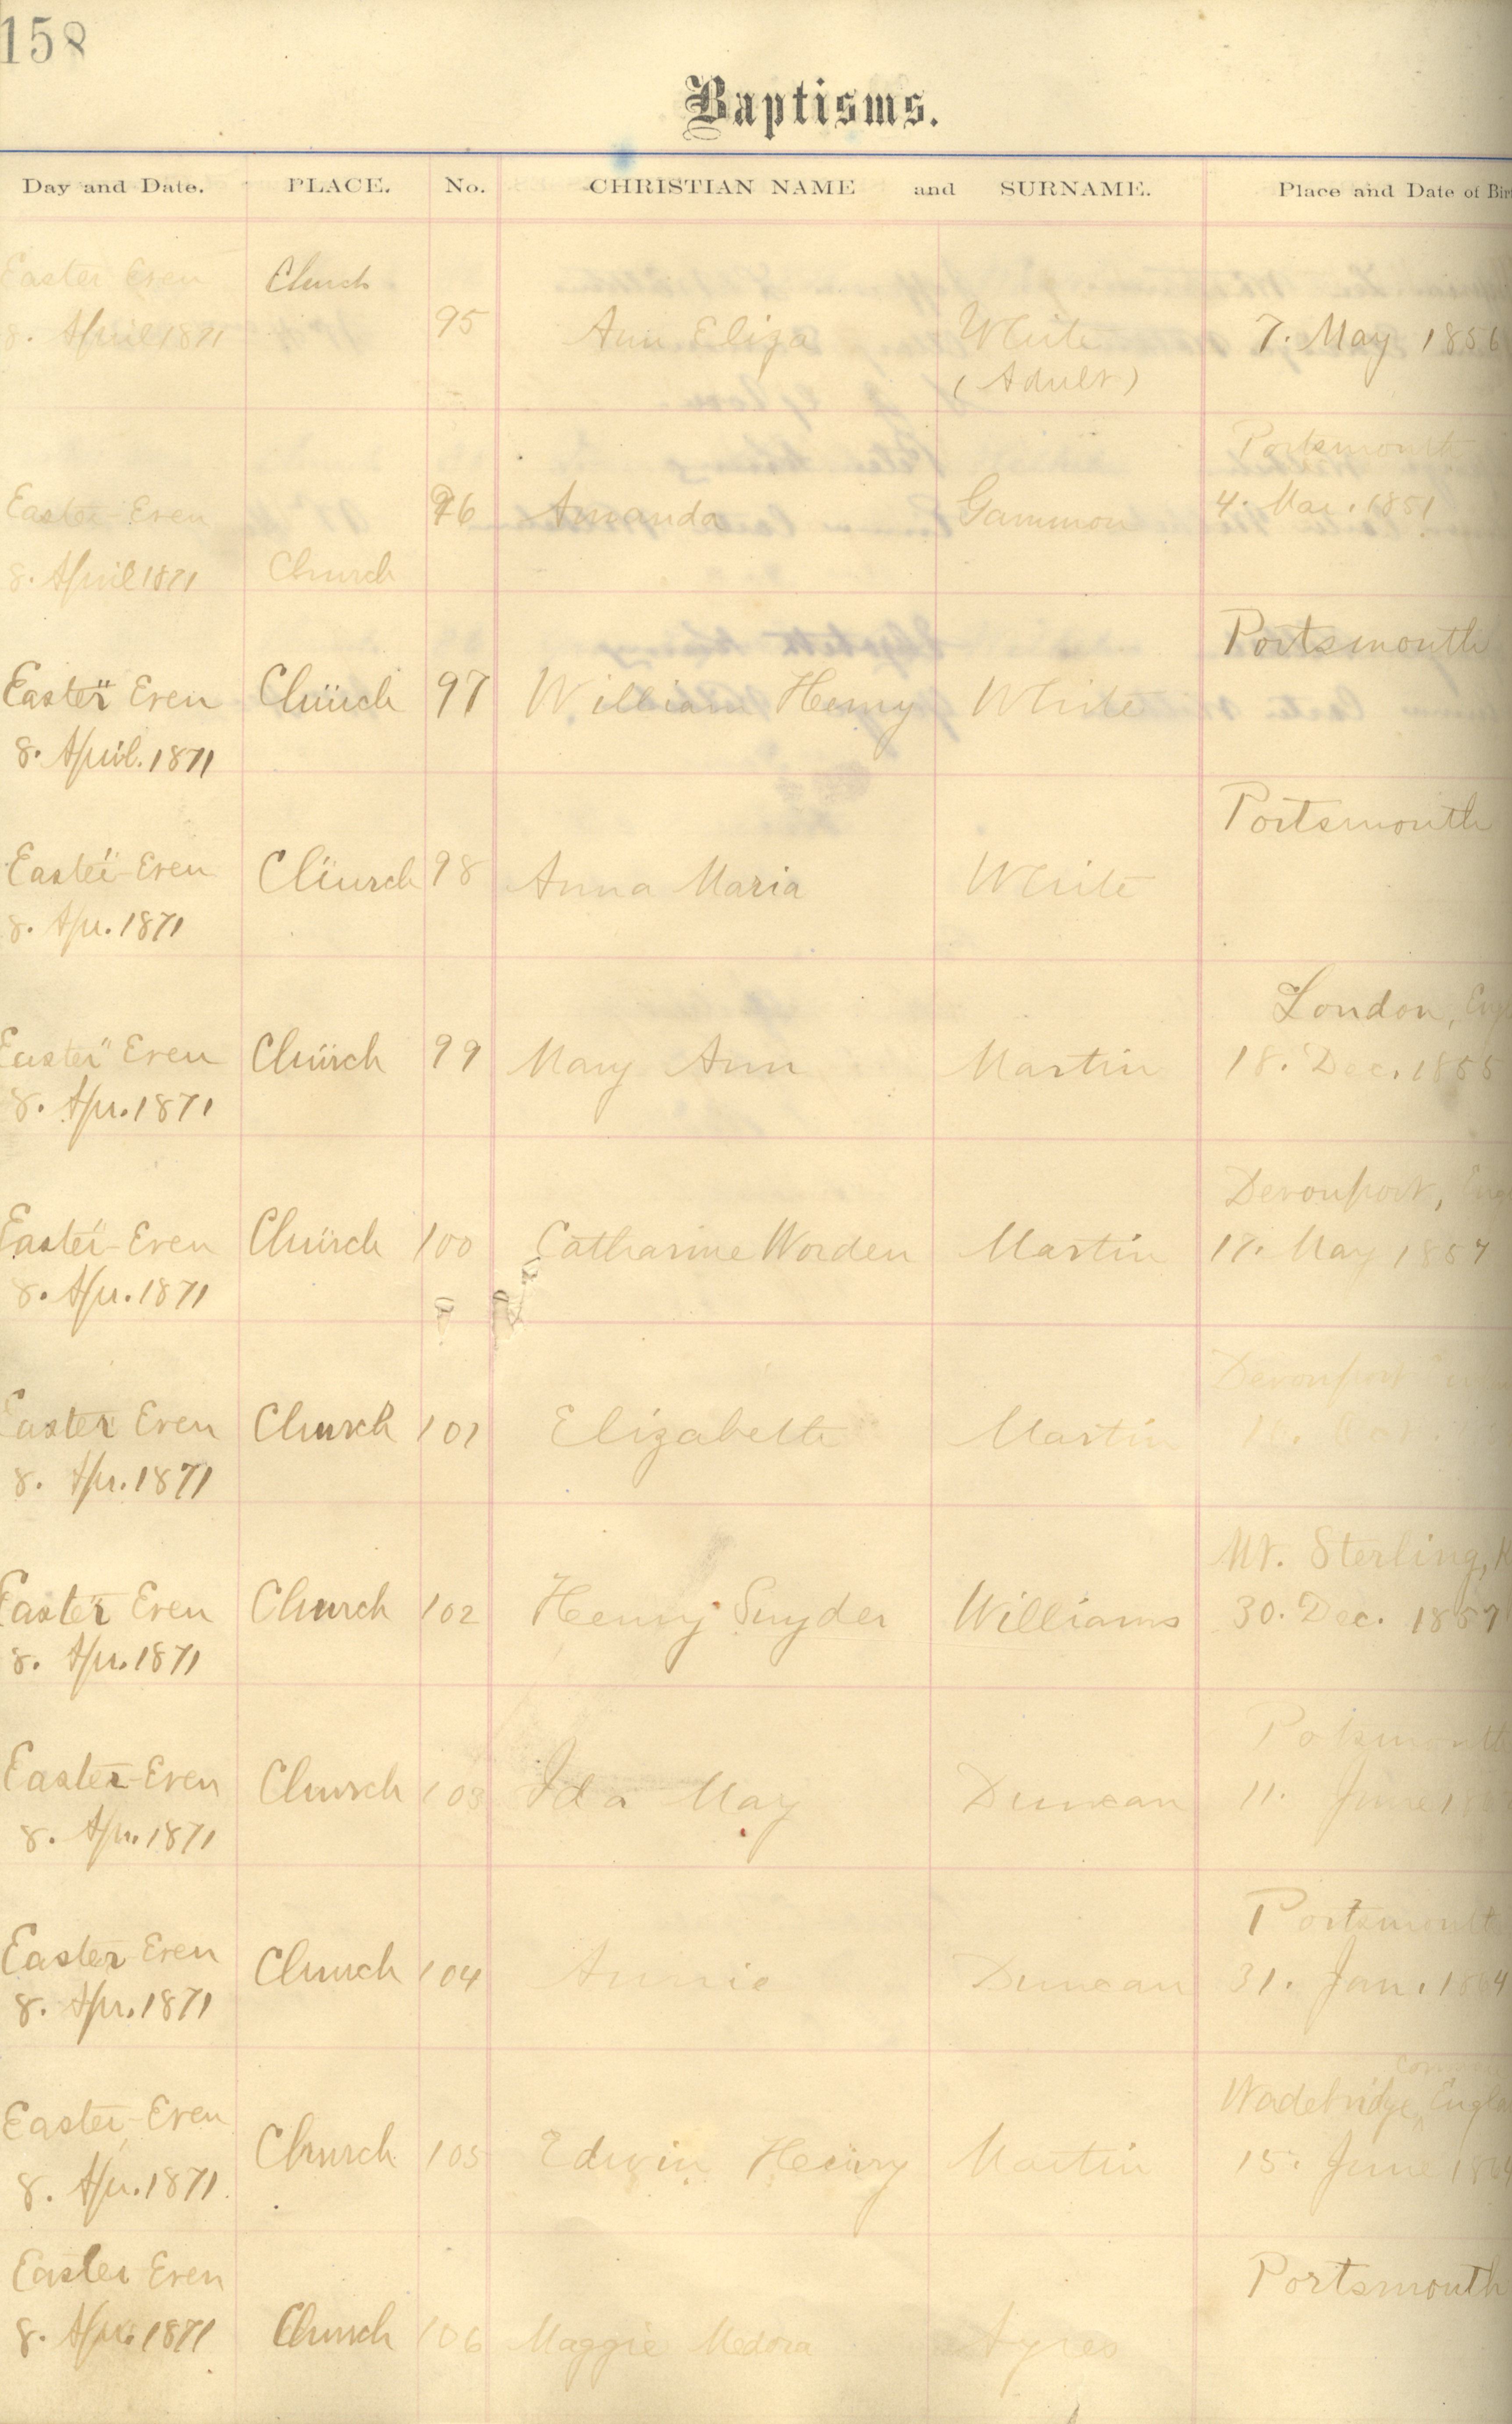 158
Baptisms.
Day and Date. PLACE. No. CHRISTIAN NAME and SURNAME. Place and Date of Bir
Easter Even Church
8. April 1871 95 Ann Eliza White 7. May 1856
(Adult)
Portsmouth
Easter-Even 96 Amanda Gammon 4. Mar. 1851
8. April 1871 Church
Portsmouth
Easter Even Church 97 William Henry White
8. April. 1871
Portsmouth
Easter-Even Church 98 Anna Maria White
8. Apr. 1871
London, Eng
Easter Even Church 99 Mary Ann Martin 18. Dec. 1855
8. Apr. 1871
Devonport, Eng
Easter-Even Church 100 Catharine Worden Martin 17. May 1857
8. Apr. 1871
Devonport
Easter Even Church 101 Elizabeth Martin
8. Apr. 1871
Mt. Sterling, K
Easter Even Church 102 Henry Snyder Williams 30. Dec. 1857
8. Apr. 1871
Potsmouth
Easter-Even Church 103 Ida May Duncan 11. June 18
8. Apr. 1871
Portsmouth
Easter Even Church 104 Annie Duncan 31. Jan. 1864
8. Apr. 1871
Wadebridge, Englan
Easter-Even Church 105 Edwin Henry Martin 15. June 186
8. Apr. 1871.
Easter Even Portsmouth
8. Apr. 1871 Church 106 Maggie Medora Ayres